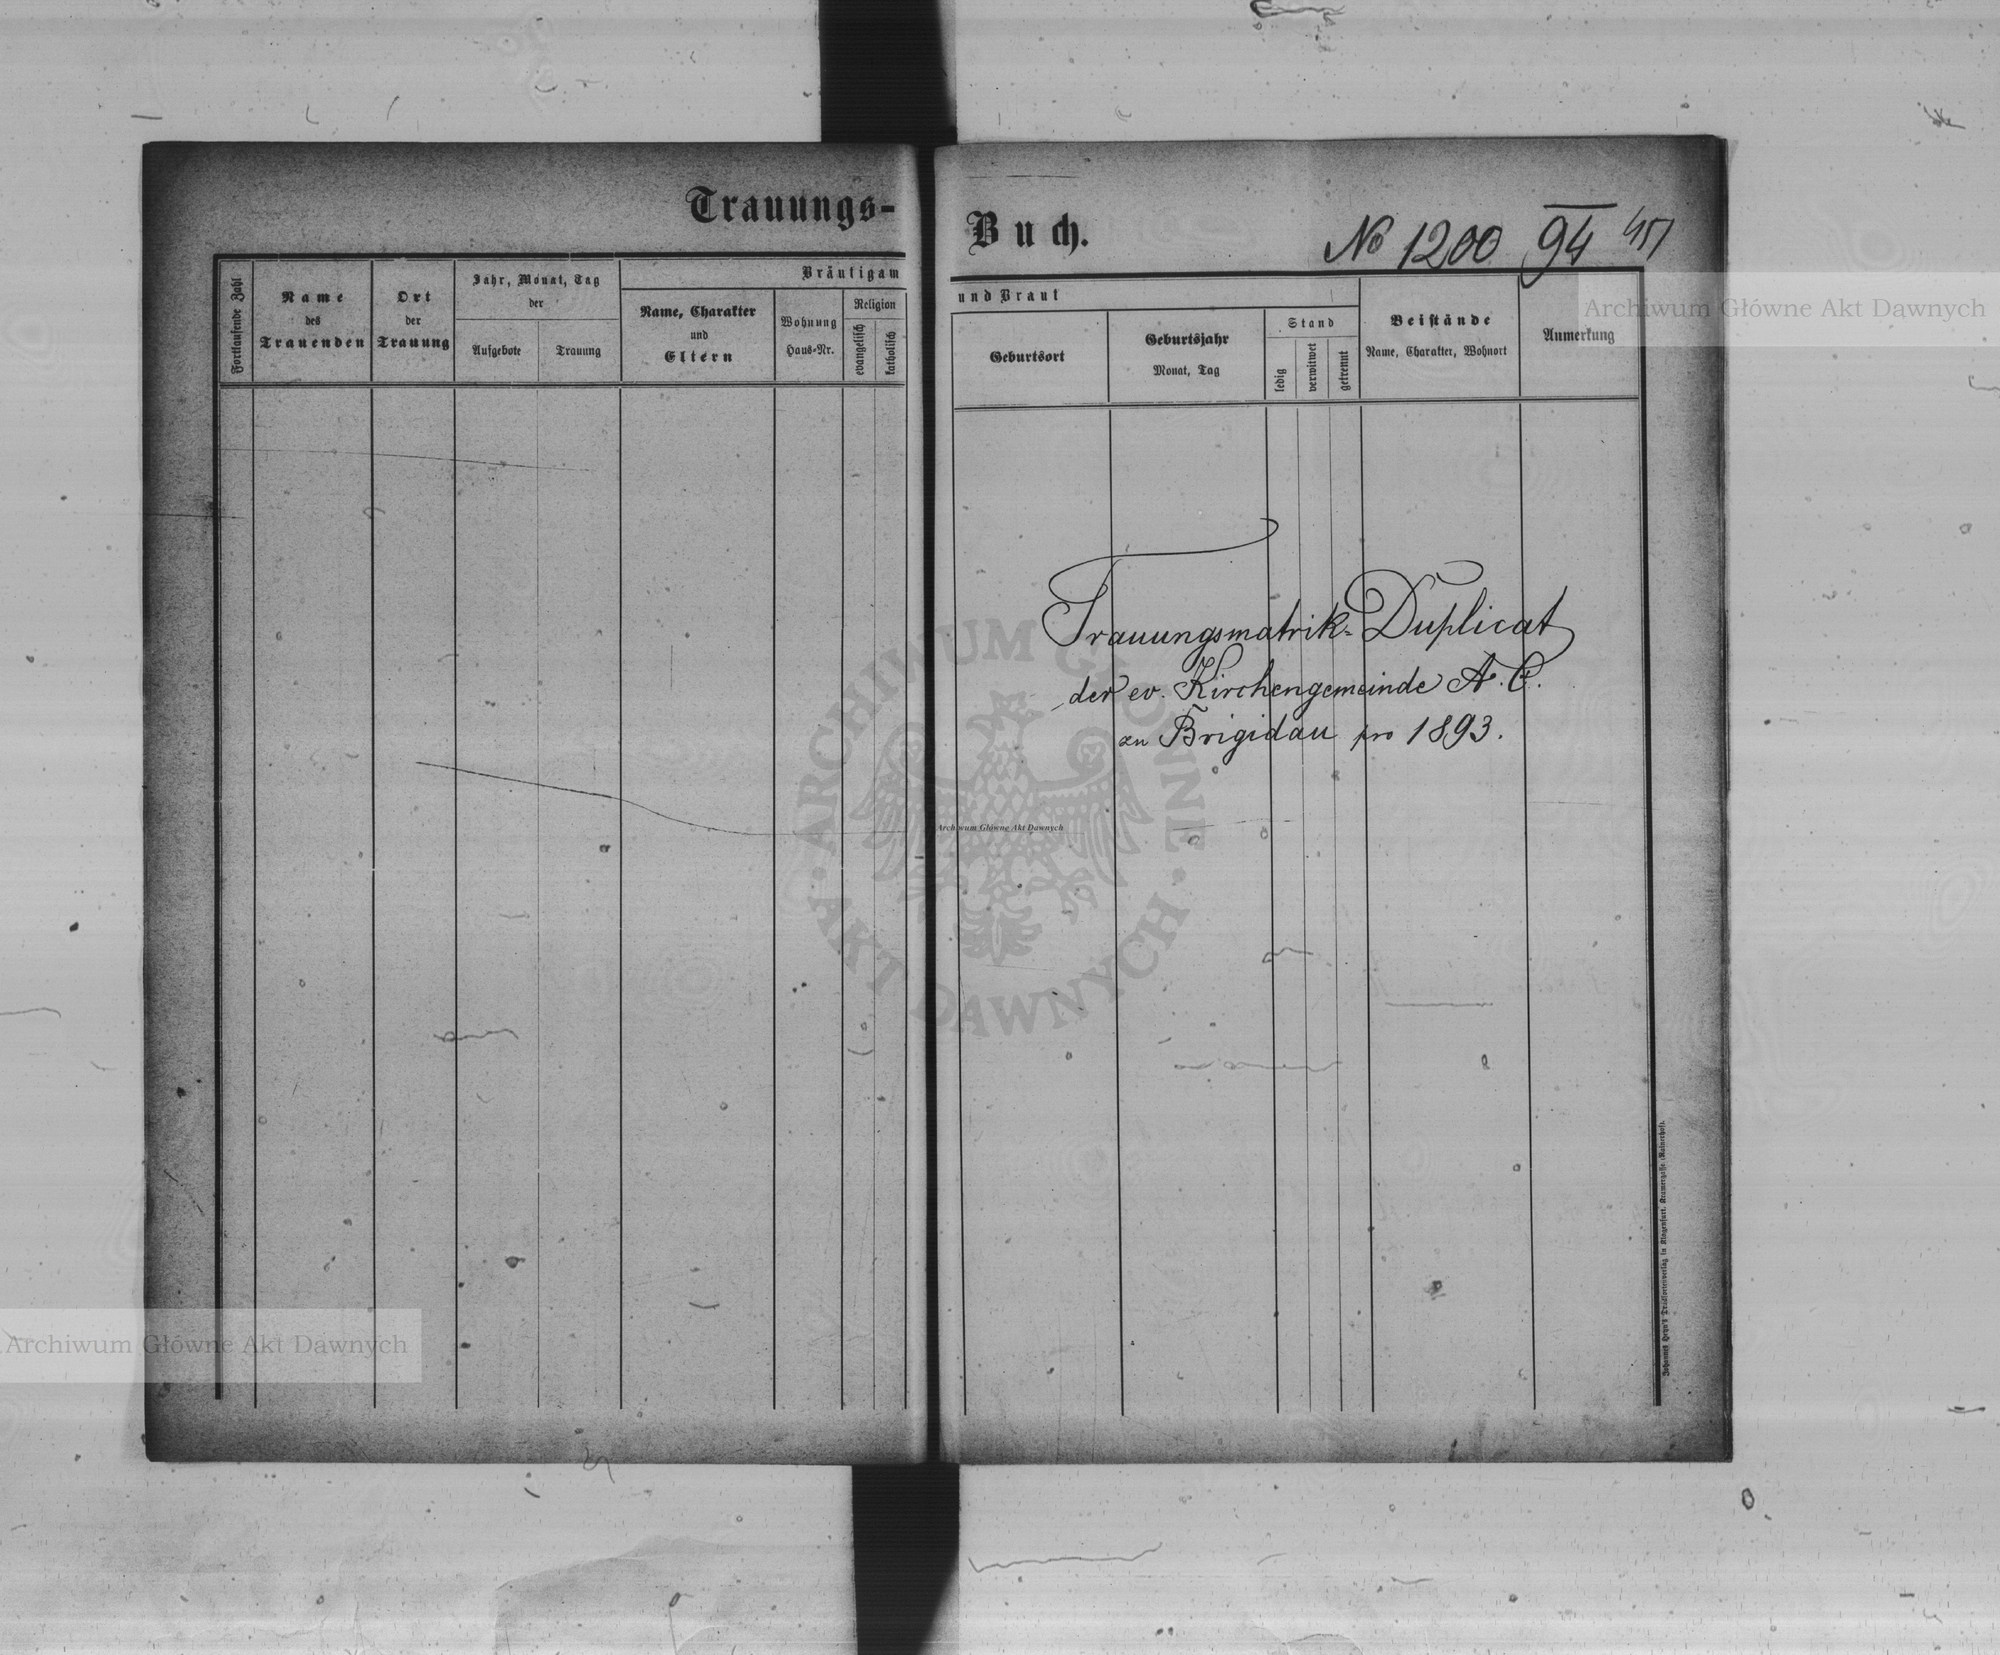 Trauungs-
Buch.
No 1200 94 451
Fortlaufende Zahl
Name
des
Trauenden
Ort
der
Trauung
Jahr, Monat, Tag
der
Aufgebote
Trauung
Bräutigam
Name, Charakter
und
Eltern
Wohnung
Haus-Nr.
Religion
evangelisch
katholisch
und Braut
Geburtsort
Geburtsjahr
Monat, Tag
Stand
ledig
verwitwet
getrennt
Beistände
Name, Charakter, Wohnort
Anmerkung
Trauungsmatrik-Duplicat
der ev. Kirchengemeinde A. C.
zu Brigidau pro 1893.
Johannes Heyn's Drucksortenverlag in Klagenfurt, Kramergasse (Rainerhof).
Archiwum Główne Akt Dawnych
Archiwum Główne Akt Dawnych
Archiwum Główne Akt Dawnych
ARCHIWUM GŁÓWNE
AKT DAWNYCH